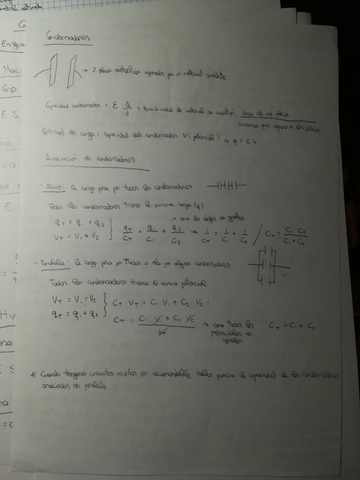 Condensadores
→ 2 placas metálicas separadas por un material aislante
Capacidad condensador = ε S/d → Permitividad del material en cuestión · área de una placa
distancia que separa a las placas
Cantidad de carga = Capacidad del condensador · V (potencial) → q = C·V
Asociación de condensadores
- Serie: La carga pasa por todos los condensadores
Todos los condensadores tienen la misma carga (q)
qT = q1 = q2
VT = V1 + V2
qT/CT = q1/C1 + q2/C2 → 1/CT = 1/C1 + 1/C2 / CT = C1·C2/C1+C2
como las cargas son iguales
- Paralelo: La carga pasa por todos o por algunos condensadores
Todos los condensadores tienen el mismo potencial
VT = V1 = V2
qT = q1 + q2
CT·VT = C1·V1 + C2·V2
CT = C1·V1 + C2·V2 / VT
→ como todos los potenciales son iguales
CT = C1 + C2
* Cuando tengamos circuitos mixtos es recomendable hallar primero la capacidad de los condensadores
asociados en paralelo